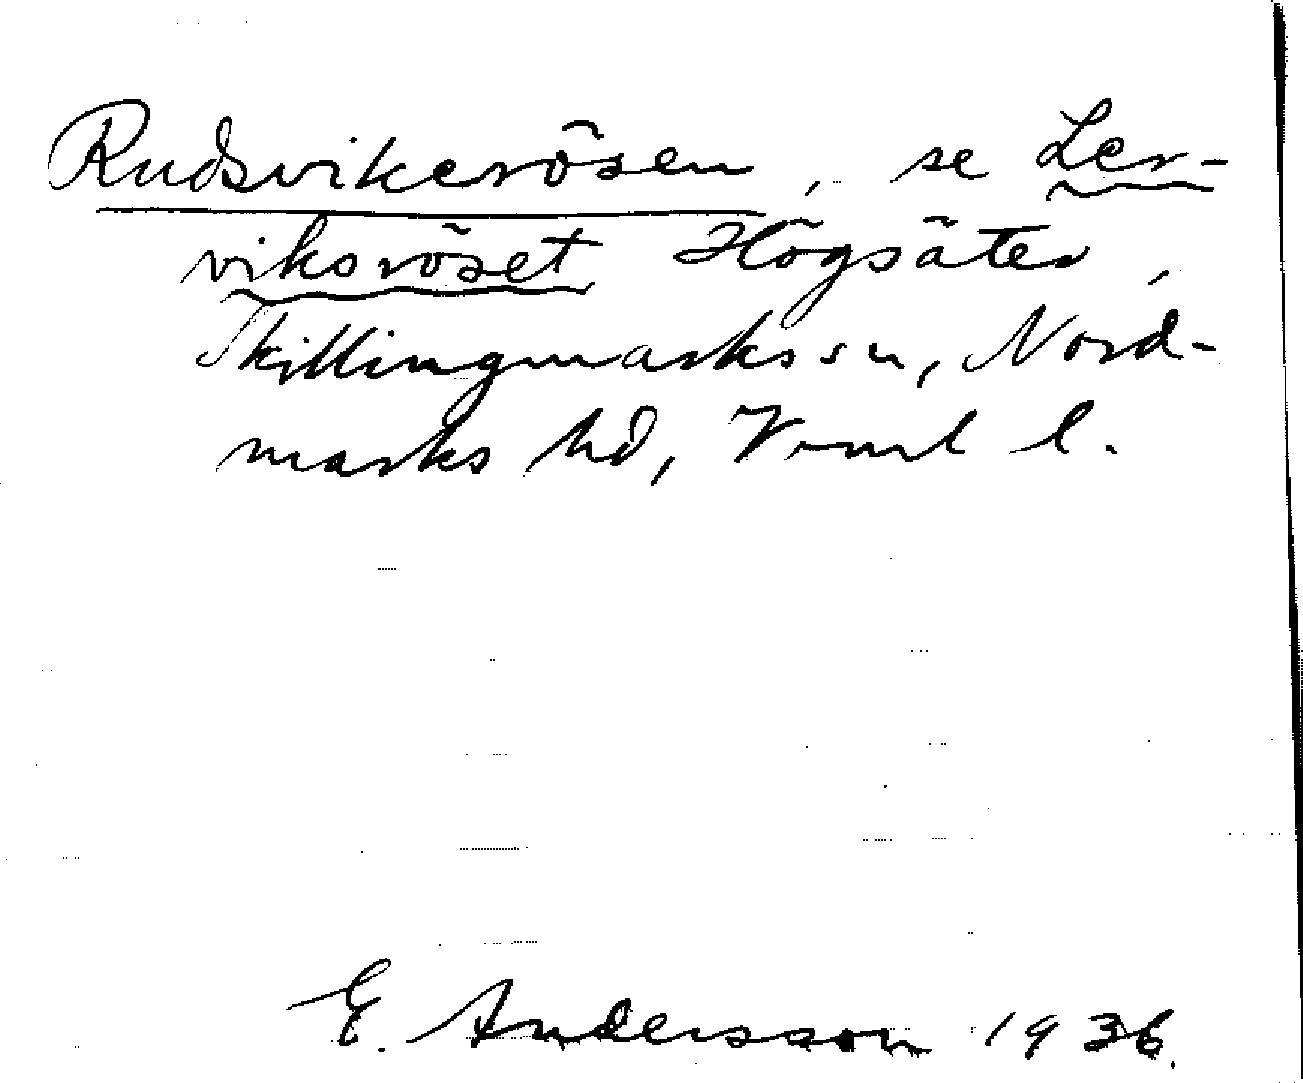 Rudsvikerösen, se Ler-
viksröset Högsäter,
Skillingmarks sn, Nord-
marks hd, Vrml l.
E. Andersson 1936.